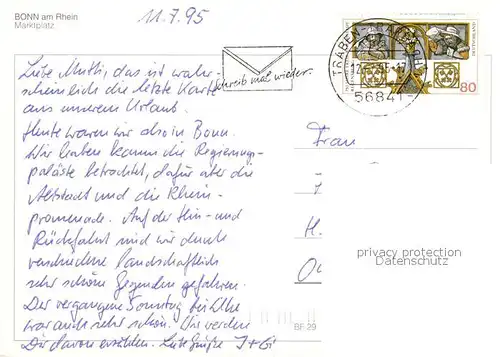 BONN am Rhein
Marktplatz
11.7.95
Liebe Mutti, das ist wahr-
scheinlich die letzte Karte
aus unserem Urlaub.
Heute waren wir also in Bonn.
Wir haben kaum die Regierungs-
paläste betrachtet, dafür aber die
Altstadt und die Rhein-
promenade. Auf der Hin- und
Rückfahrt sind wir durch
verschiedene landschaftlich
sehr schöne Gegenden gefahren.
Der vergangene Sonntag bei Elke
war auch sehr schön. Wir werden
Dir davon erzählen. Liebe Grüße I+G
Schreib mal wieder.
TRABEN
56841
80
Frau
H.
privacy protection
Datenschutz
BF 29